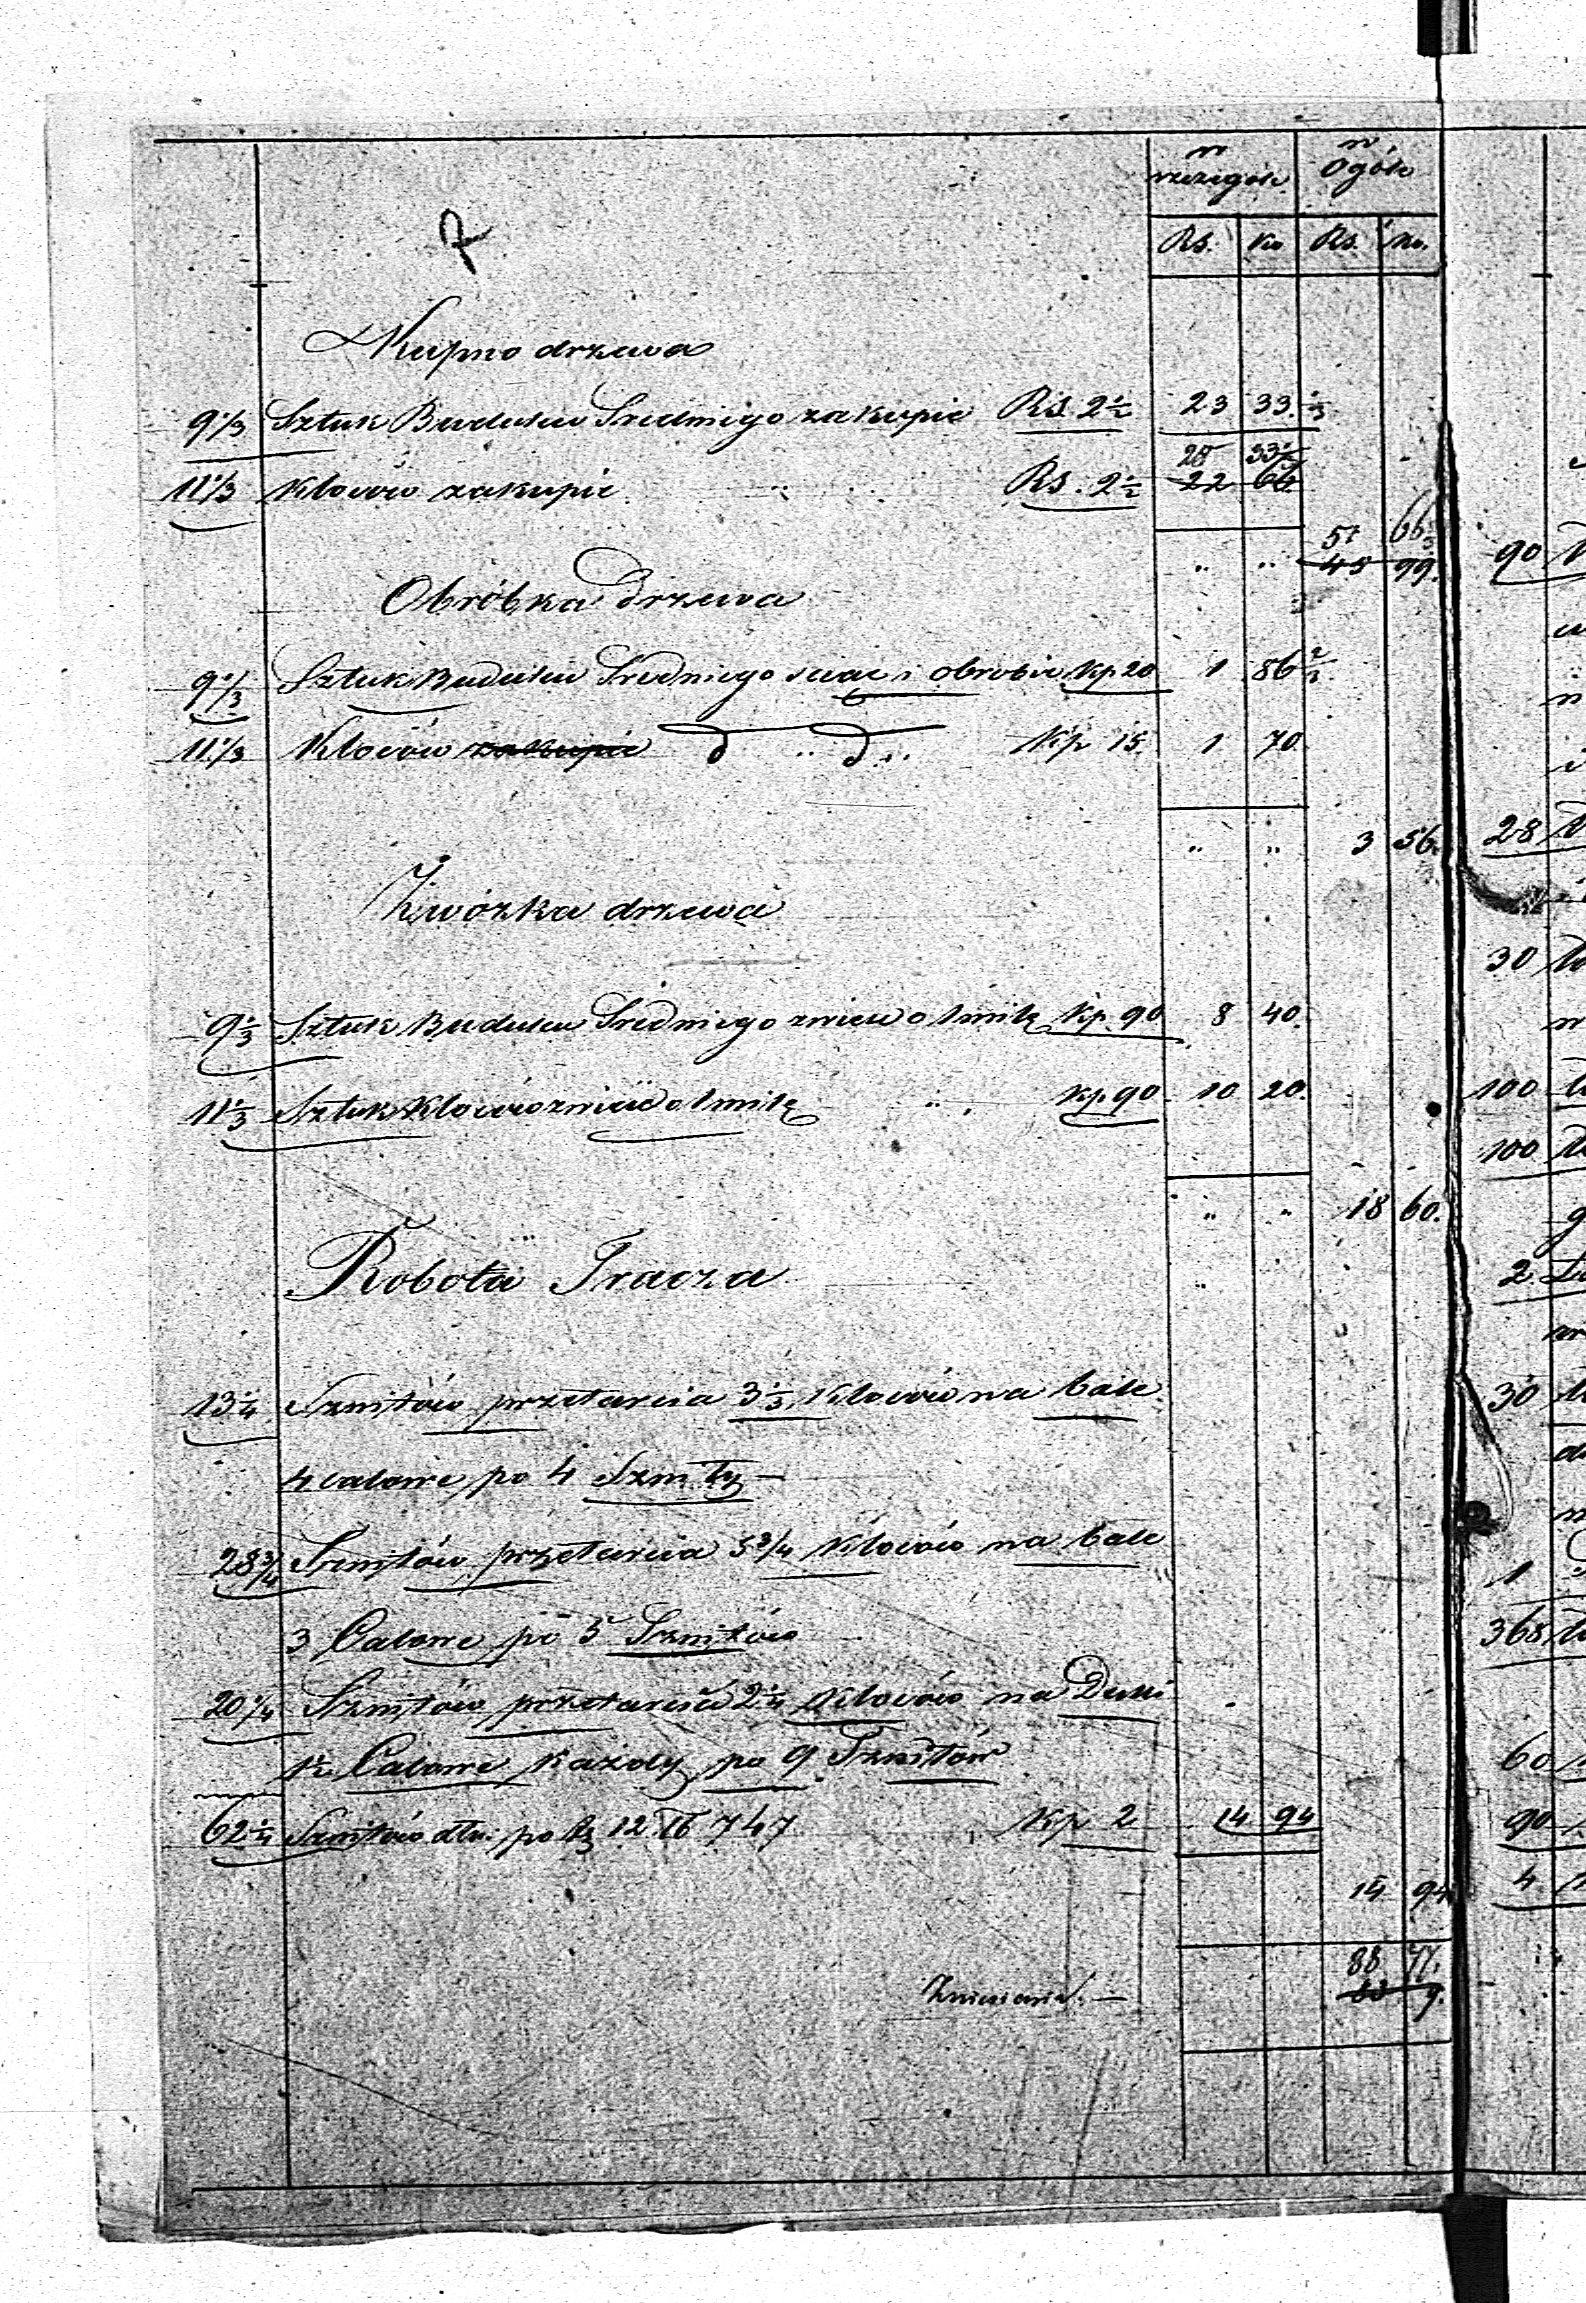 w szczególe
w Ogóle
Rs. Ko Rs. Ko.
7
Kupno drzewa
9 1/3 Sztuk Budulcu Sredniego zakupić Rs. 2 1/2 23 33 1/3
28 33 1/3
11 1/3 Klocow zakupić Rs. 2 1/2 22 66
51 66 2/3
" " 45 99.
Obróbka Drzewa
9 1/3 Sztuk Budulcu Sredniego sciąć i obrobić Kp 20 1 86 2/3
11 1/3 Kloców zakupić d " d " Kp 15. 1 70.
" " 3 56.
Zwózka drzewa
9 1/3 Sztuk Budulcu Sredniego zwieść o 1 milę Kp. 90 8 40.
11 1/3 Sztuk Kloców zwieść o 1 milę " " Kp 90 10 20.
" " 18 60.
Robota Tracza
13 1/4 Sznitów przetarcia 3 1/3 Kloców na bale
4 calowe po 4 Sznity
28 3/4 Sznitów przetarcia 5 3/4 Kloców na bale
3 Calowe po 5 Sznitów
20 1/4 Sznitów przetarcia 2 1/4 Kloców na
1 1/2 Calowe każdy po 9 Sznitów
62 1/4 Sznitów dłu. po 12 747 Kp 2 14 94
14 94
88 77.
9.
90
28
30
100
100
2
30
1
368
60
90
4